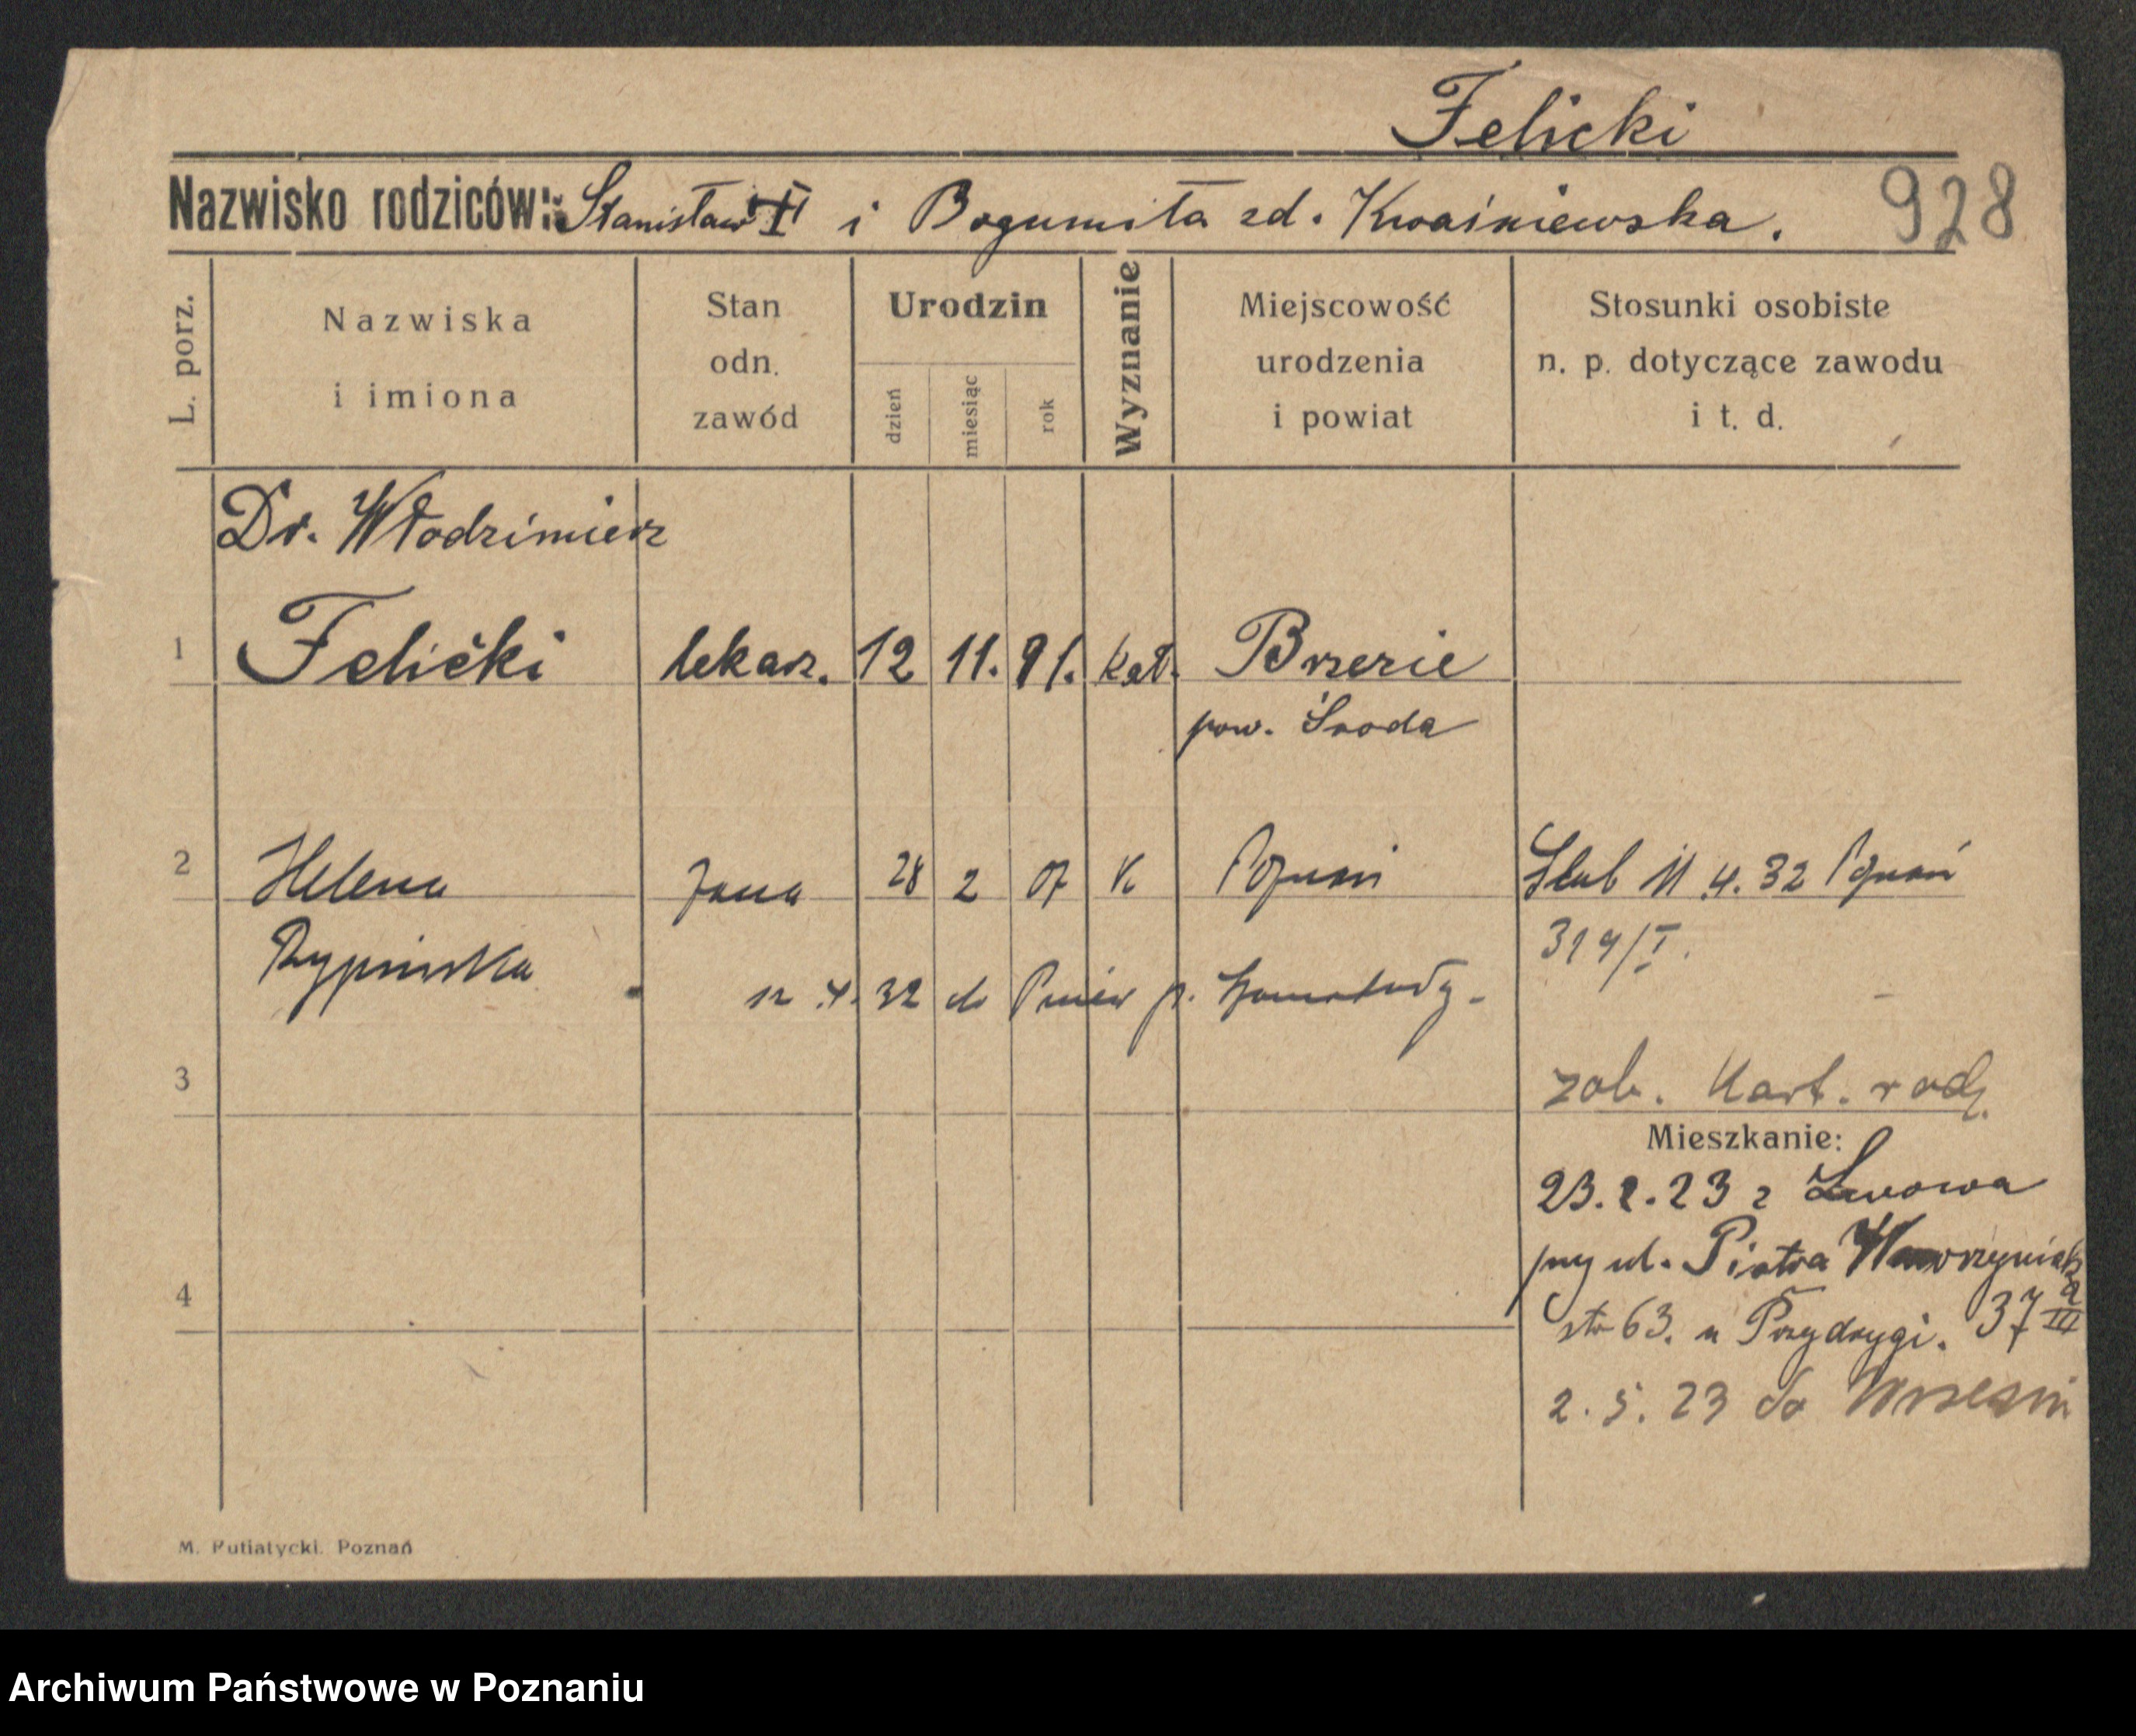 Felicki
Nazwisko rodziców: Stanisław i Bogumiła zd. Kwaśniewska.
928
L. porz.
Nazwiska
i imiona
Stan
odn.
zawód
Urodzin
dzień
miesiąc
rok
Wyznanie
Miejscowość
urodzenia
i powiat
Stosunki osobiste
n. p. dotyczące zawodu
i t. d.
Dr. Włodzimierz
1 Felicki lekarz. 12 11. 91. kat. Brzezie
pow. Środa
2 Helena żona 28 2 07 K Poznań Ślub 11.4.32 Poznań
Rypińska
319/I.
12.4.32 do Pniew p. Szamotuły-
3
zob. Kart. rodz.
Mieszkanie:
23.2.23 z Lwowa
przy ul. Piotra Wawrzyniaka
4
str 63. u Przydrygi. 37 III
2.5.23 do Wrześni
M. Putiatycki. Poznań
Archiwum Państwowe w Poznaniu